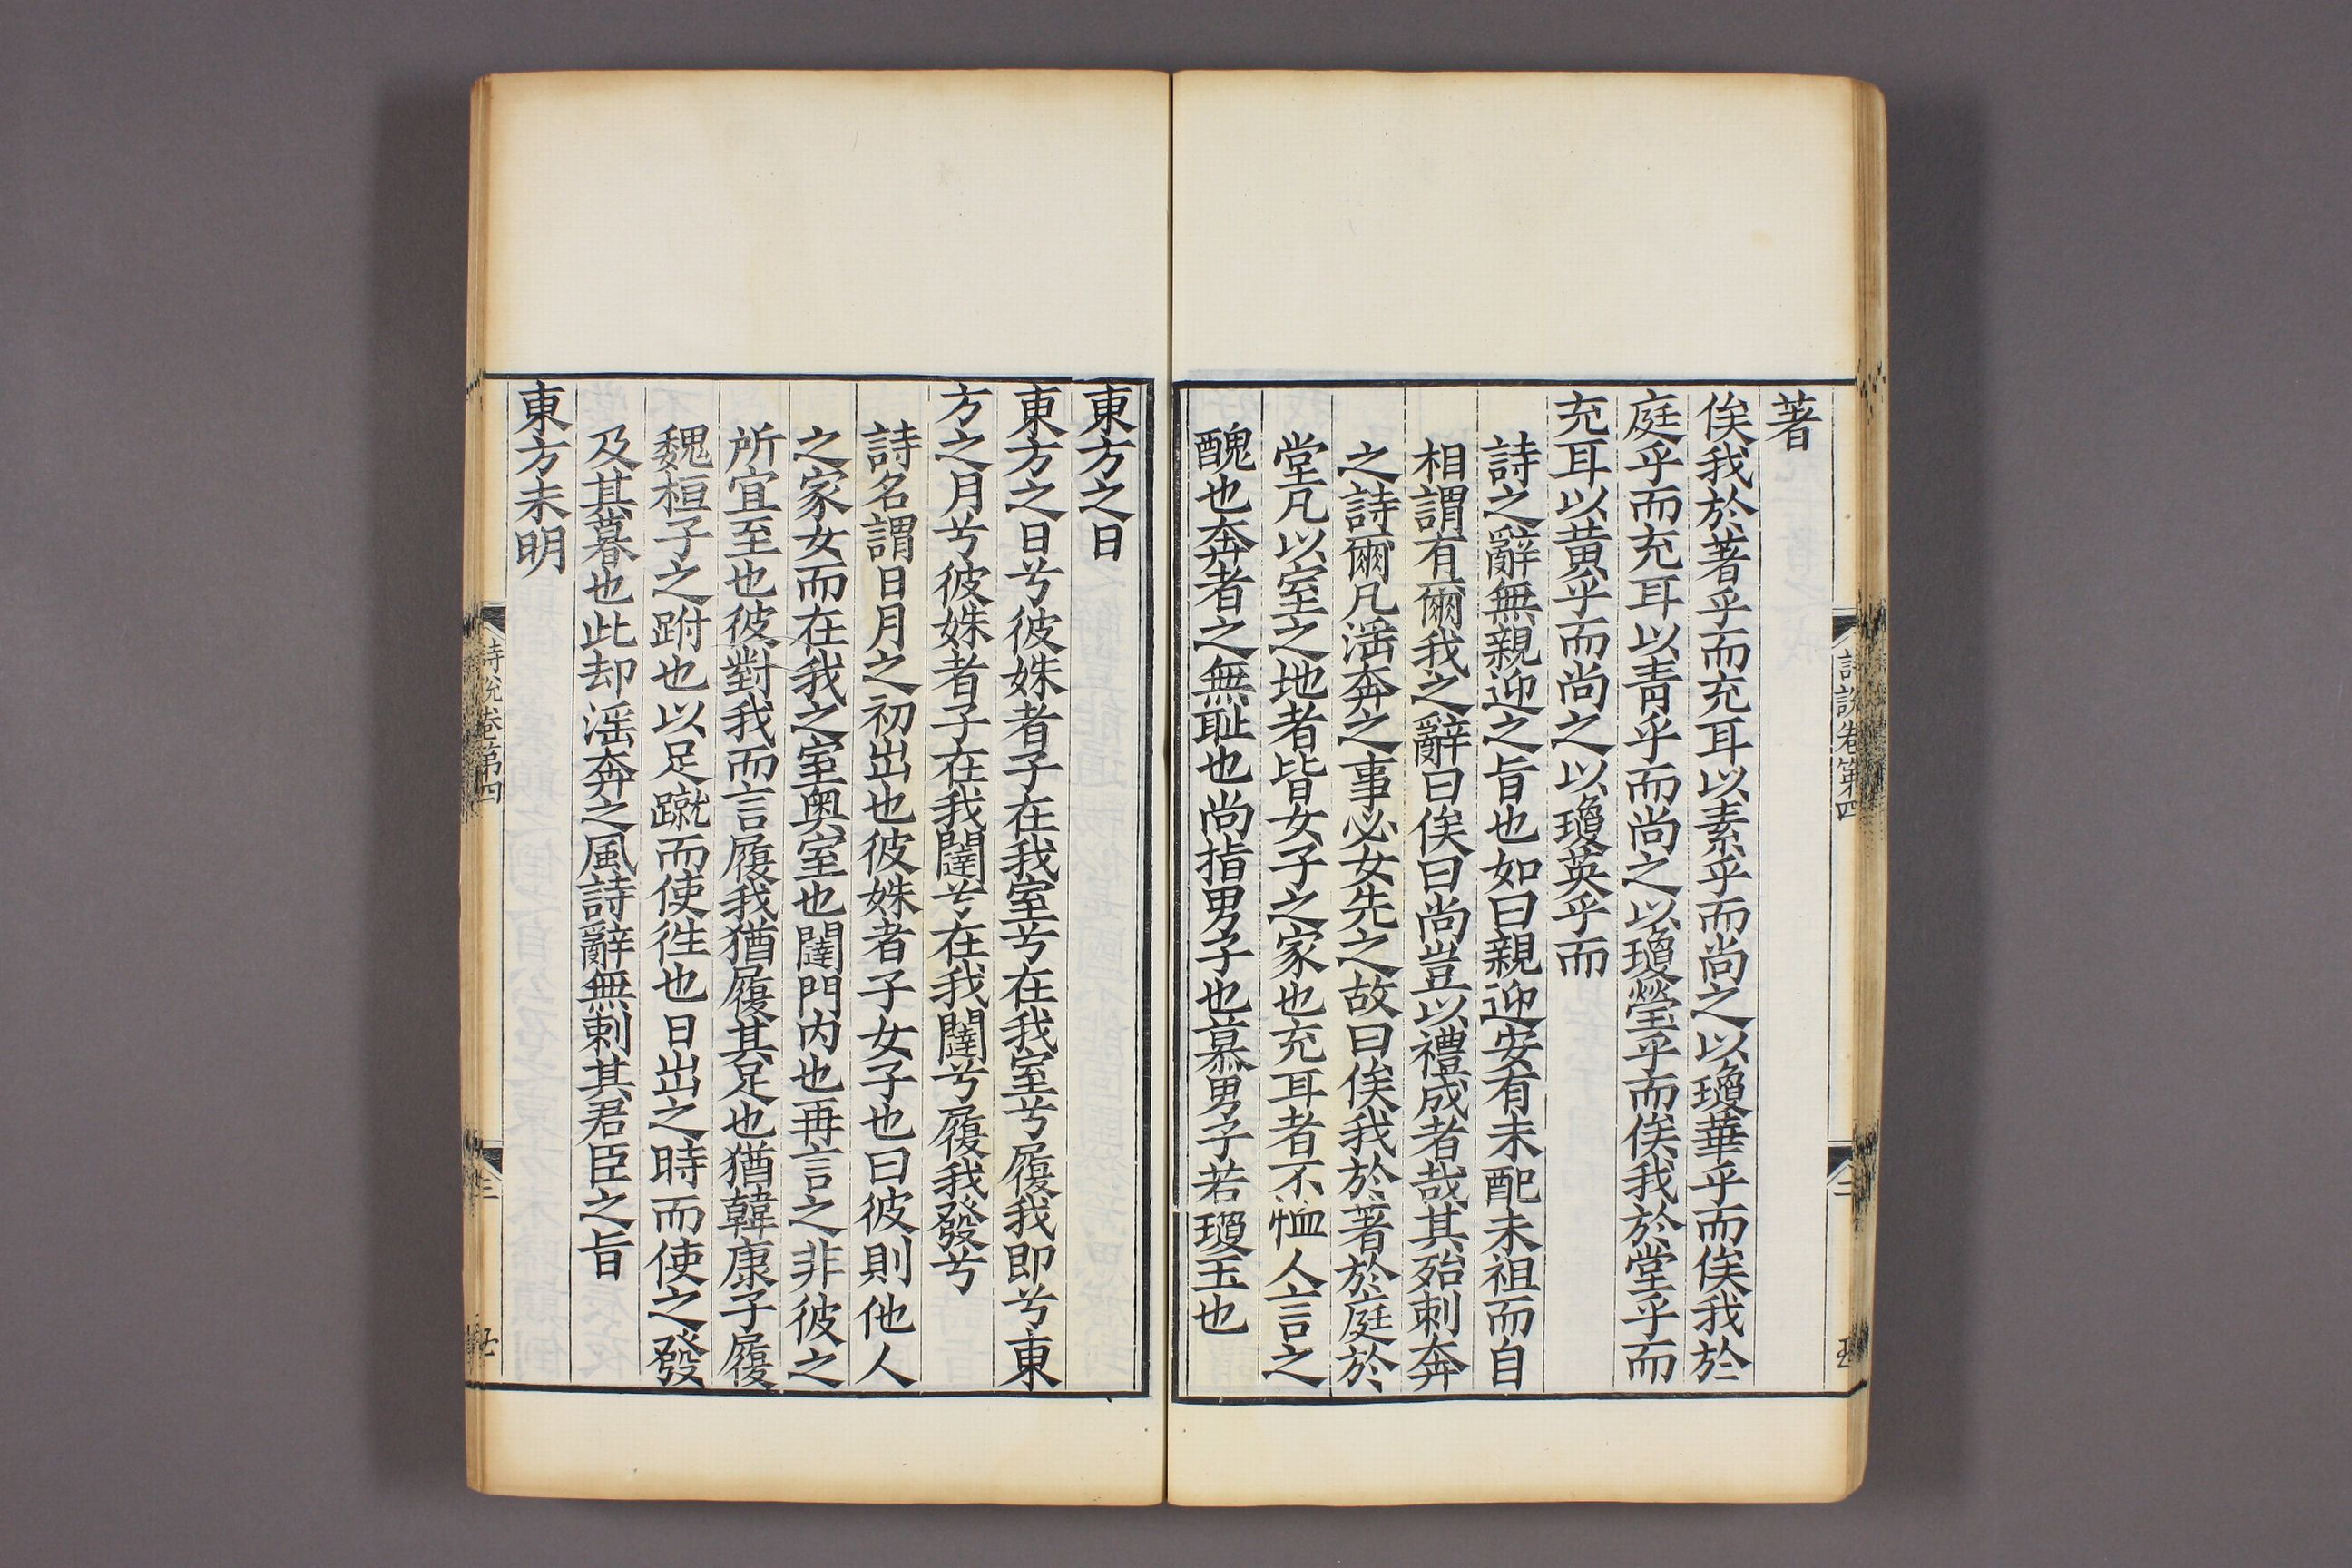 著
俟我於著乎而充耳以素乎而尚之以瓊華乎而俟我於
庭乎而充耳以青乎而尚之以瓊瑩乎而俟我於堂乎而
充耳以黄乎而尚之以瓊英乎而
詩之辭無親迎之旨也如曰親迎安有未配未祖而自
相謂有爾我之辭曰俟曰尚豈以禮成者哉其殆刺奔
之詩爾凡滛奔之事必女先之故曰俟我於著於庭於
堂凡以室之地者皆女子之家也充耳者不恤人言之
醜也奔者之無耻也尚指男子也慕男子若瓊玉也
詩說卷第四
二
東方之日
東方之日兮彼姝者子在我室兮在我室兮履我即兮東
方之月兮彼姝者子在我闥兮在我闥兮履我發兮
詩名謂日月之初出也彼姝者子女子也曰彼則他人
之家女而在我之室奥室也闥門内也再言之非彼之
所宜至也彼對我而言履我猶履其足也猶韓康子履
魏桓子之跗也以足蹴而使徃也日出之時而使之發
及其暮也此却滛奔之風詩辭無刺其君臣之旨
東方未明
詩說卷第四
三